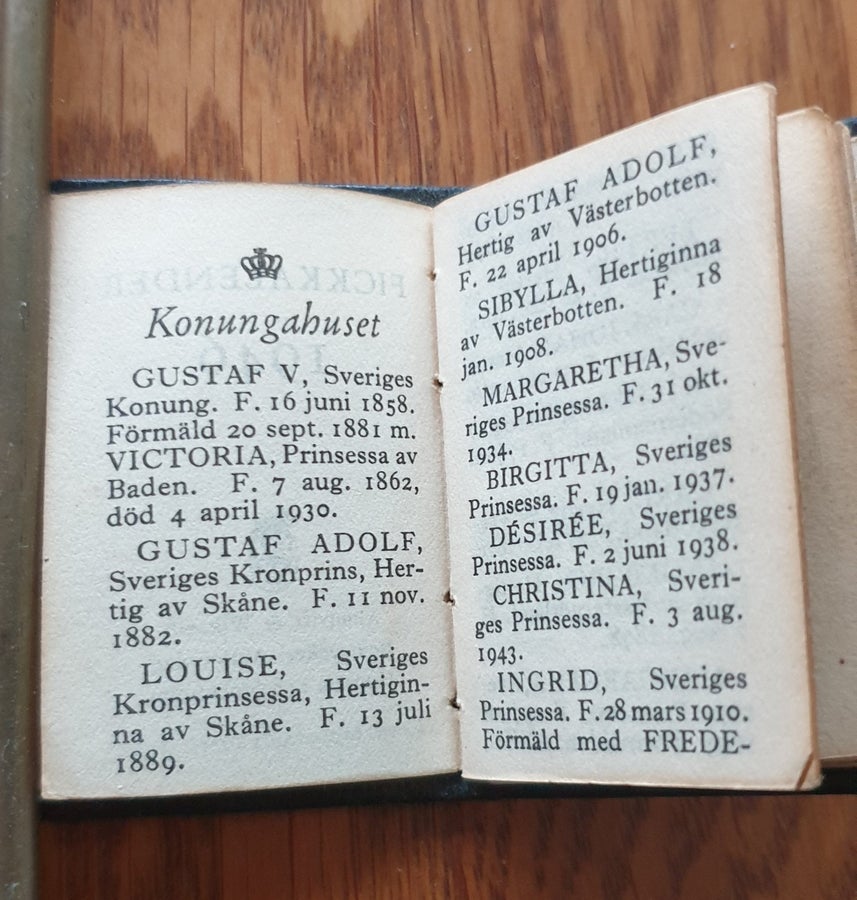 Konungahuset
GUSTAF V, Sveriges
Konung. F. 16 juni 1858.
Förmäld 20 sept. 1881 m.
VICTORIA, Prinsessa av
Baden. F. 7 aug. 1862,
död 4 april 1930.
GUSTAF ADOLF,
Sveriges Kronprins, Her-
tig av Skåne. F. 11 nov.
1882.
LOUISE, Sveriges
Kronprinsessa, Hertigin-
na av Skåne. F. 13 juli
1889.
GUSTAF ADOLF,
Hertig av Västerbotten.
F. 22 april 1906.
SIBYLLA, Hertiginna
av Västerbotten. F. 18
jan. 1908.
MARGARETHA, Sve-
riges Prinsessa. F. 31 okt.
1934.
BIRGITTA, Sveriges
Prinsessa. F. 19 jan. 1937.
DÉSIRÉE, Sveriges
Prinsessa. F. 2 juni 1938.
CHRISTINA, Sveri-
ges Prinsessa. F. 3 aug.
1943.
INGRID, Sveriges
Prinsessa. F. 28 mars 1910.
Förmäld med FREDE-